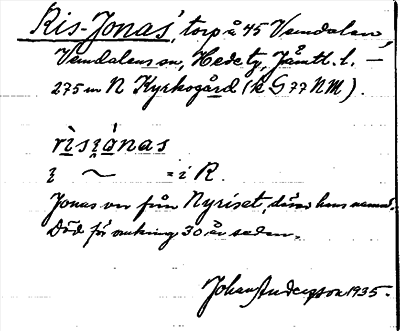 Ris-Jonas', torp å 45 Vemdalen,
Vemdalens sn, Hede tg, Jämtl. l. —
275 m N Kyrkogård (k G 77 NM).
rìsjònas
~ = i R.
Jonas var från Nyriset, därav hans namn.
Död för omkring 30 år sedan.
Johan Andersson 1935.